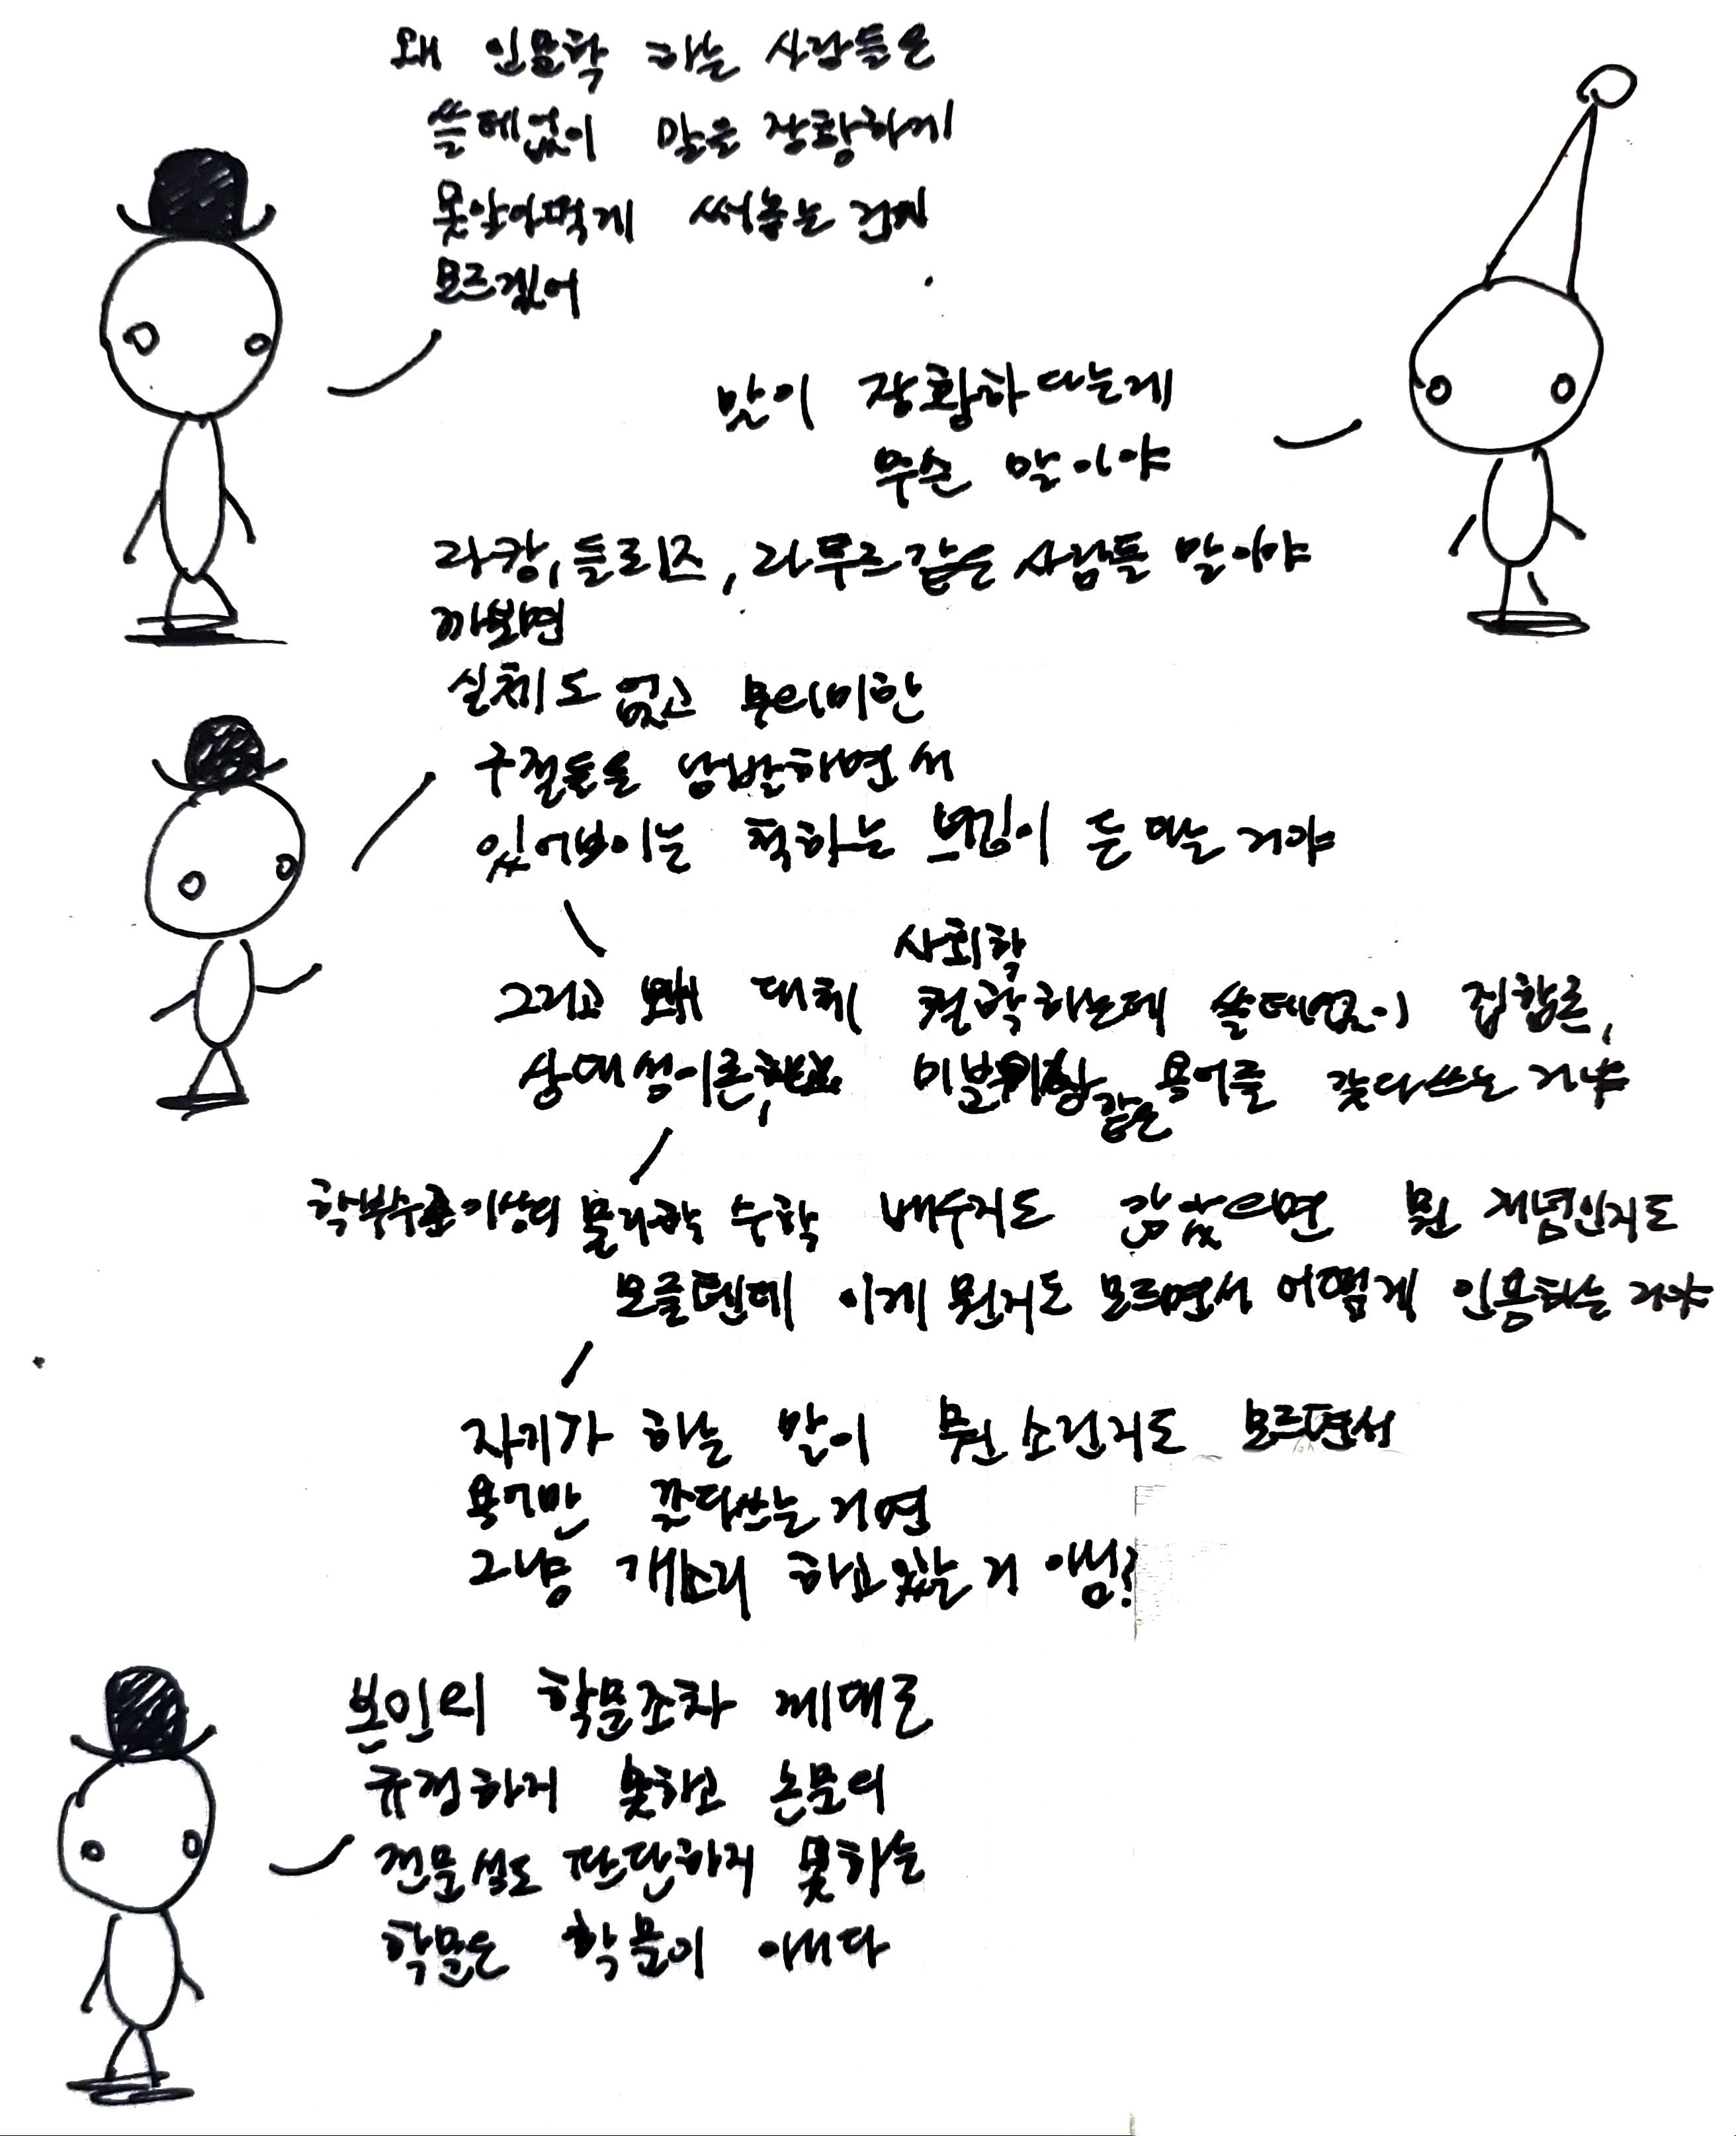 왜 인문학 하는 사람들은
쓸데없이 말을 장황하게
못알아먹게 써놓는 건지
모르겠어
말이 장황하다는게
무슨 말이야
라캉, 들뢰즈, 라투르같은 사람들 말이야
까보면
실체도 없고 무의미한
구절들을 남발하면서
있어보이는 척하는 느낌이 든 말을 거야
사회학
그리고 왜 대체 철학하는데 쓸데없이 집합론,
상대성이론, 미분기하 같은 용어를 갖다쓰는 거야
학부수준이상의 물리학 수학 배우지도 않았으면 뭔 개념인지도
모를텐데 이게 뭔지도 모르면서 어떻게 인용하는 거야
자기가 하는 말이 뭔소린지도 모르면서
용어만 갖다쓰는거면
그냥 개소리 하고있는거 아님?
본인의 학문조차 제대로
규정하지 못하고 논문의
전문성도 판단하지 못하는
학문은 학문이 아니다